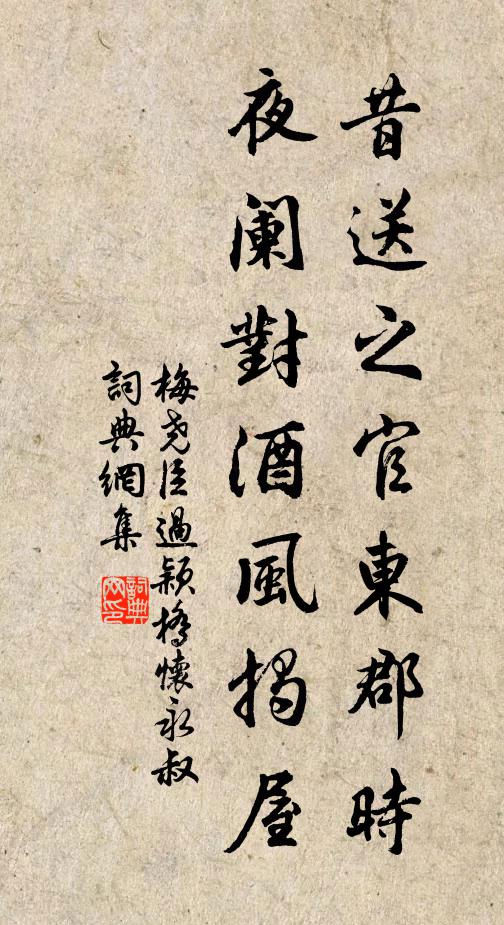 昔送之官東郡時
夜阑對酒風揭屋
梅堯臣過潁橋懷永叔
詞典網集
詞典网印